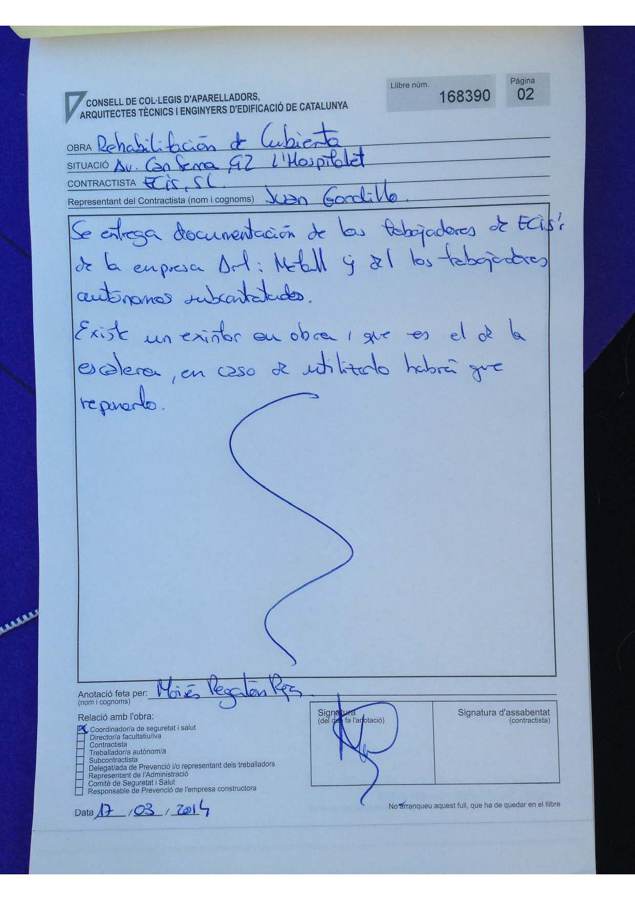 CONSELL DE COL·LEGIS D'APARELLADORS,
ARQUITECTES TÈCNICS I ENGINYERS D'EDIFICACIÓ DE CATALUNYA
Llibre núm. 168390
Pàgina 02
OBRA Rehabilitación de Cubierta
SITUACIÓ Av. Can Serra L'Hospitalet
CONTRACTISTA ECIS, SL.
Representant del Contractista (nom i cognoms) Juan Gordillo.
Se entrega documentación de los trabajadores de ECIS,
de la empresa Metall y los trabajadores
autónomos subcontratados.
Existe un extintor en obra, que es el de la
escalera, en caso de utilizarlo habrá que
reponerlo.
Anotació feta per: Moisés
(nom i cognoms)
Relació amb l'obra:
Coordinador/a de seguretat i salut
Director/a facultatiu/iva
Contractista
Treballador/a autònom/a
Subcontractista
Delegat/ada de Prevenció i/o representant dels treballadors
Representant de l'Administració
Comitè de Seguretat i Salut
Responsable de Prevenció de l'empresa constructora
Signatura
(del que fa l'anotació)
Signatura d'assabentat
(contractista)
Data 17 / 03 / 2014
No arranqueu aquest full, que ha de quedar en el llibre